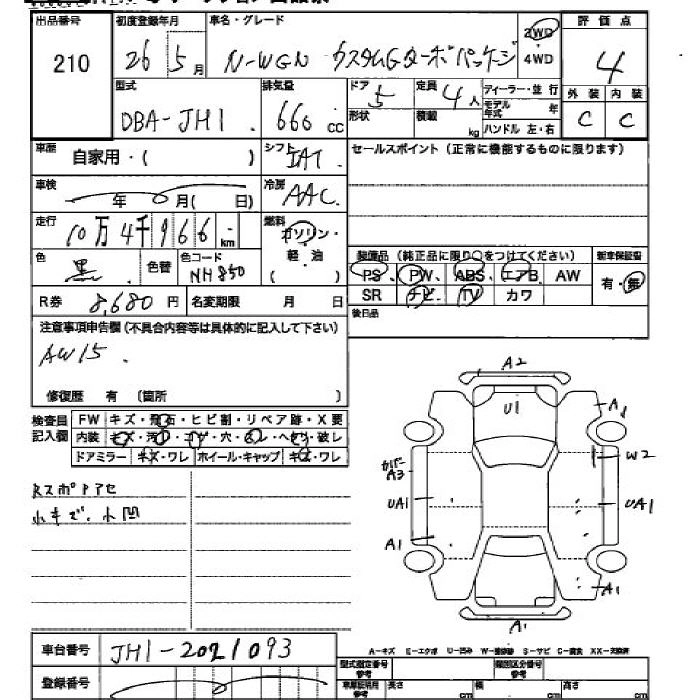 出品番号 初度登録年月 車名・グレード 評価点
210 26 5月 N-WGN カスタムGターボパッケージ 2WD 4WD 4
型式 排気量 ドア 5 定員 4人 ディーラー・並行 外装 内装
DBA-JH1 660 cc 形状 積載 kg モデル年式 年 ハンドル 左・右 C C
車歴 自家用・( ) シフト IAT セールスポイント(正常に機能するものに限ります)
車検 年 月( 日) 冷房 AAC
走行 10万4千966km 燃料 ガソリン・軽油
( )
色 黒 色替 色コード NH850 装備品(純正品に限り○をつけてください) 新車保証書
PS PW ABS エアB AW 有・無
R券 8,680円 名変期限 月 日 SR ナビ TV カワ
注意事項申告欄(不具合内容等は具体的に記入して下さい) 後日品
AW15.
修復歴 有 (箇所 )
検査員記入欄 FW キズ・飛石・ヒビ割・リペア跡・X要
内装 キズ・汚れ・コゲ・穴・ ・ ・破レ
ドアミラー キズ・ワレ ホイール・キャップ キズ・ワレ
小キズ、小凹
A2
U1
A1
カバーA3
W2
UA1
UA1
A1
A1
A1
車台番号 JH1-2021093
A-キズ E-エクボ U-凹み S-サビ C-腐食 XX-交換済
登録番号 型式指定番号 参考 類別区分番号 参考
長さ cm 幅 cm 高さ cm